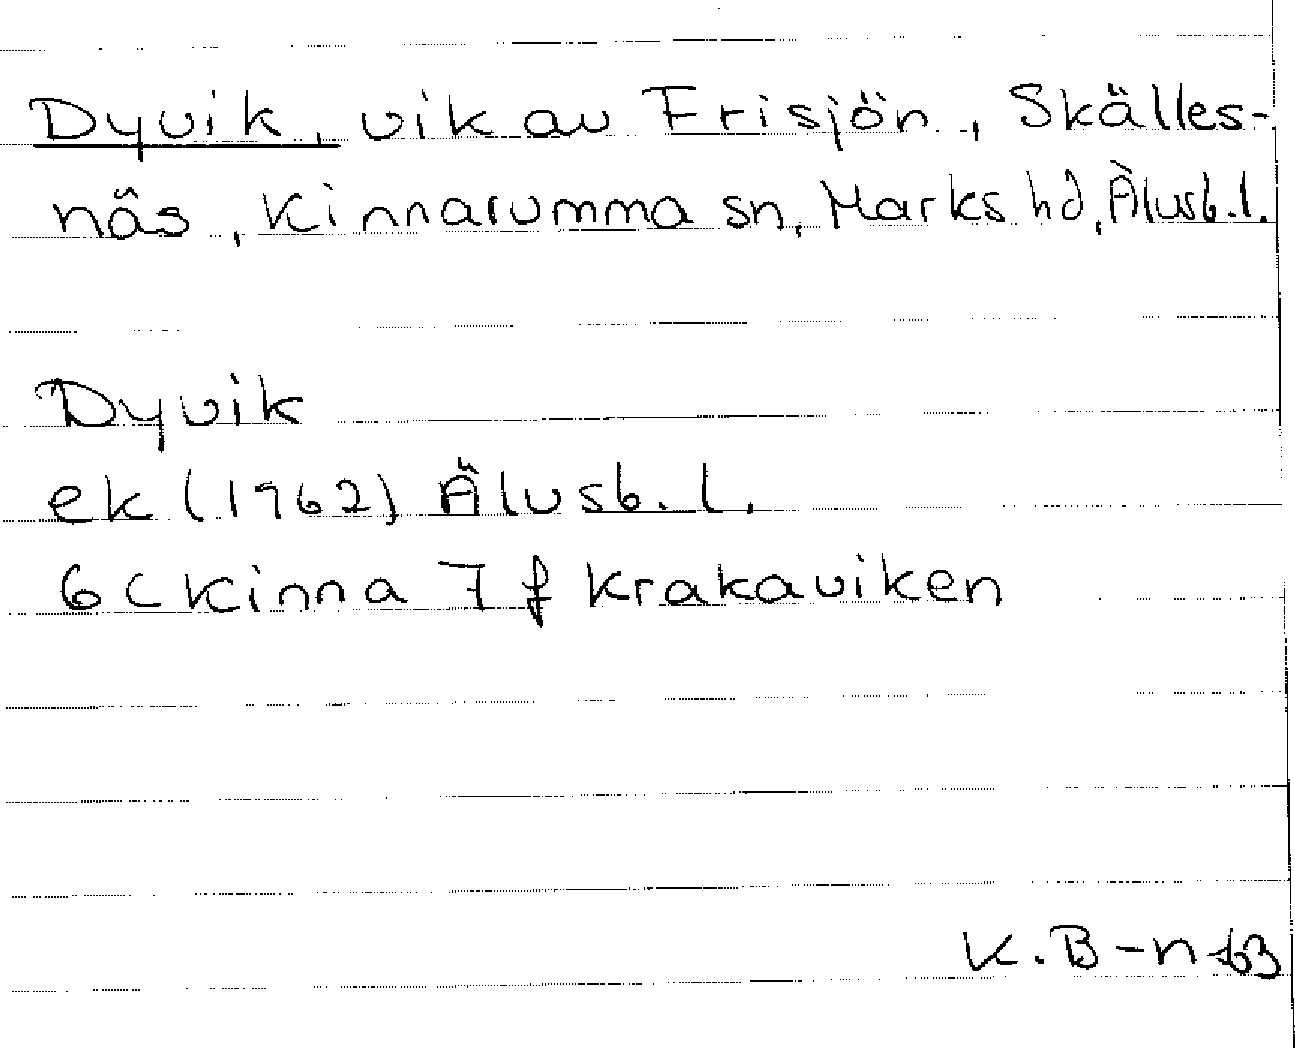 Dyvik, vik av Frisjön, Skälles-
näs, Kinnarumma sn, Marks hd, Älvsb.l.
Dyvik
ek (1962) Älvsb.l.
6 C Kinna 7 f Krakaviken
K.B-n -63